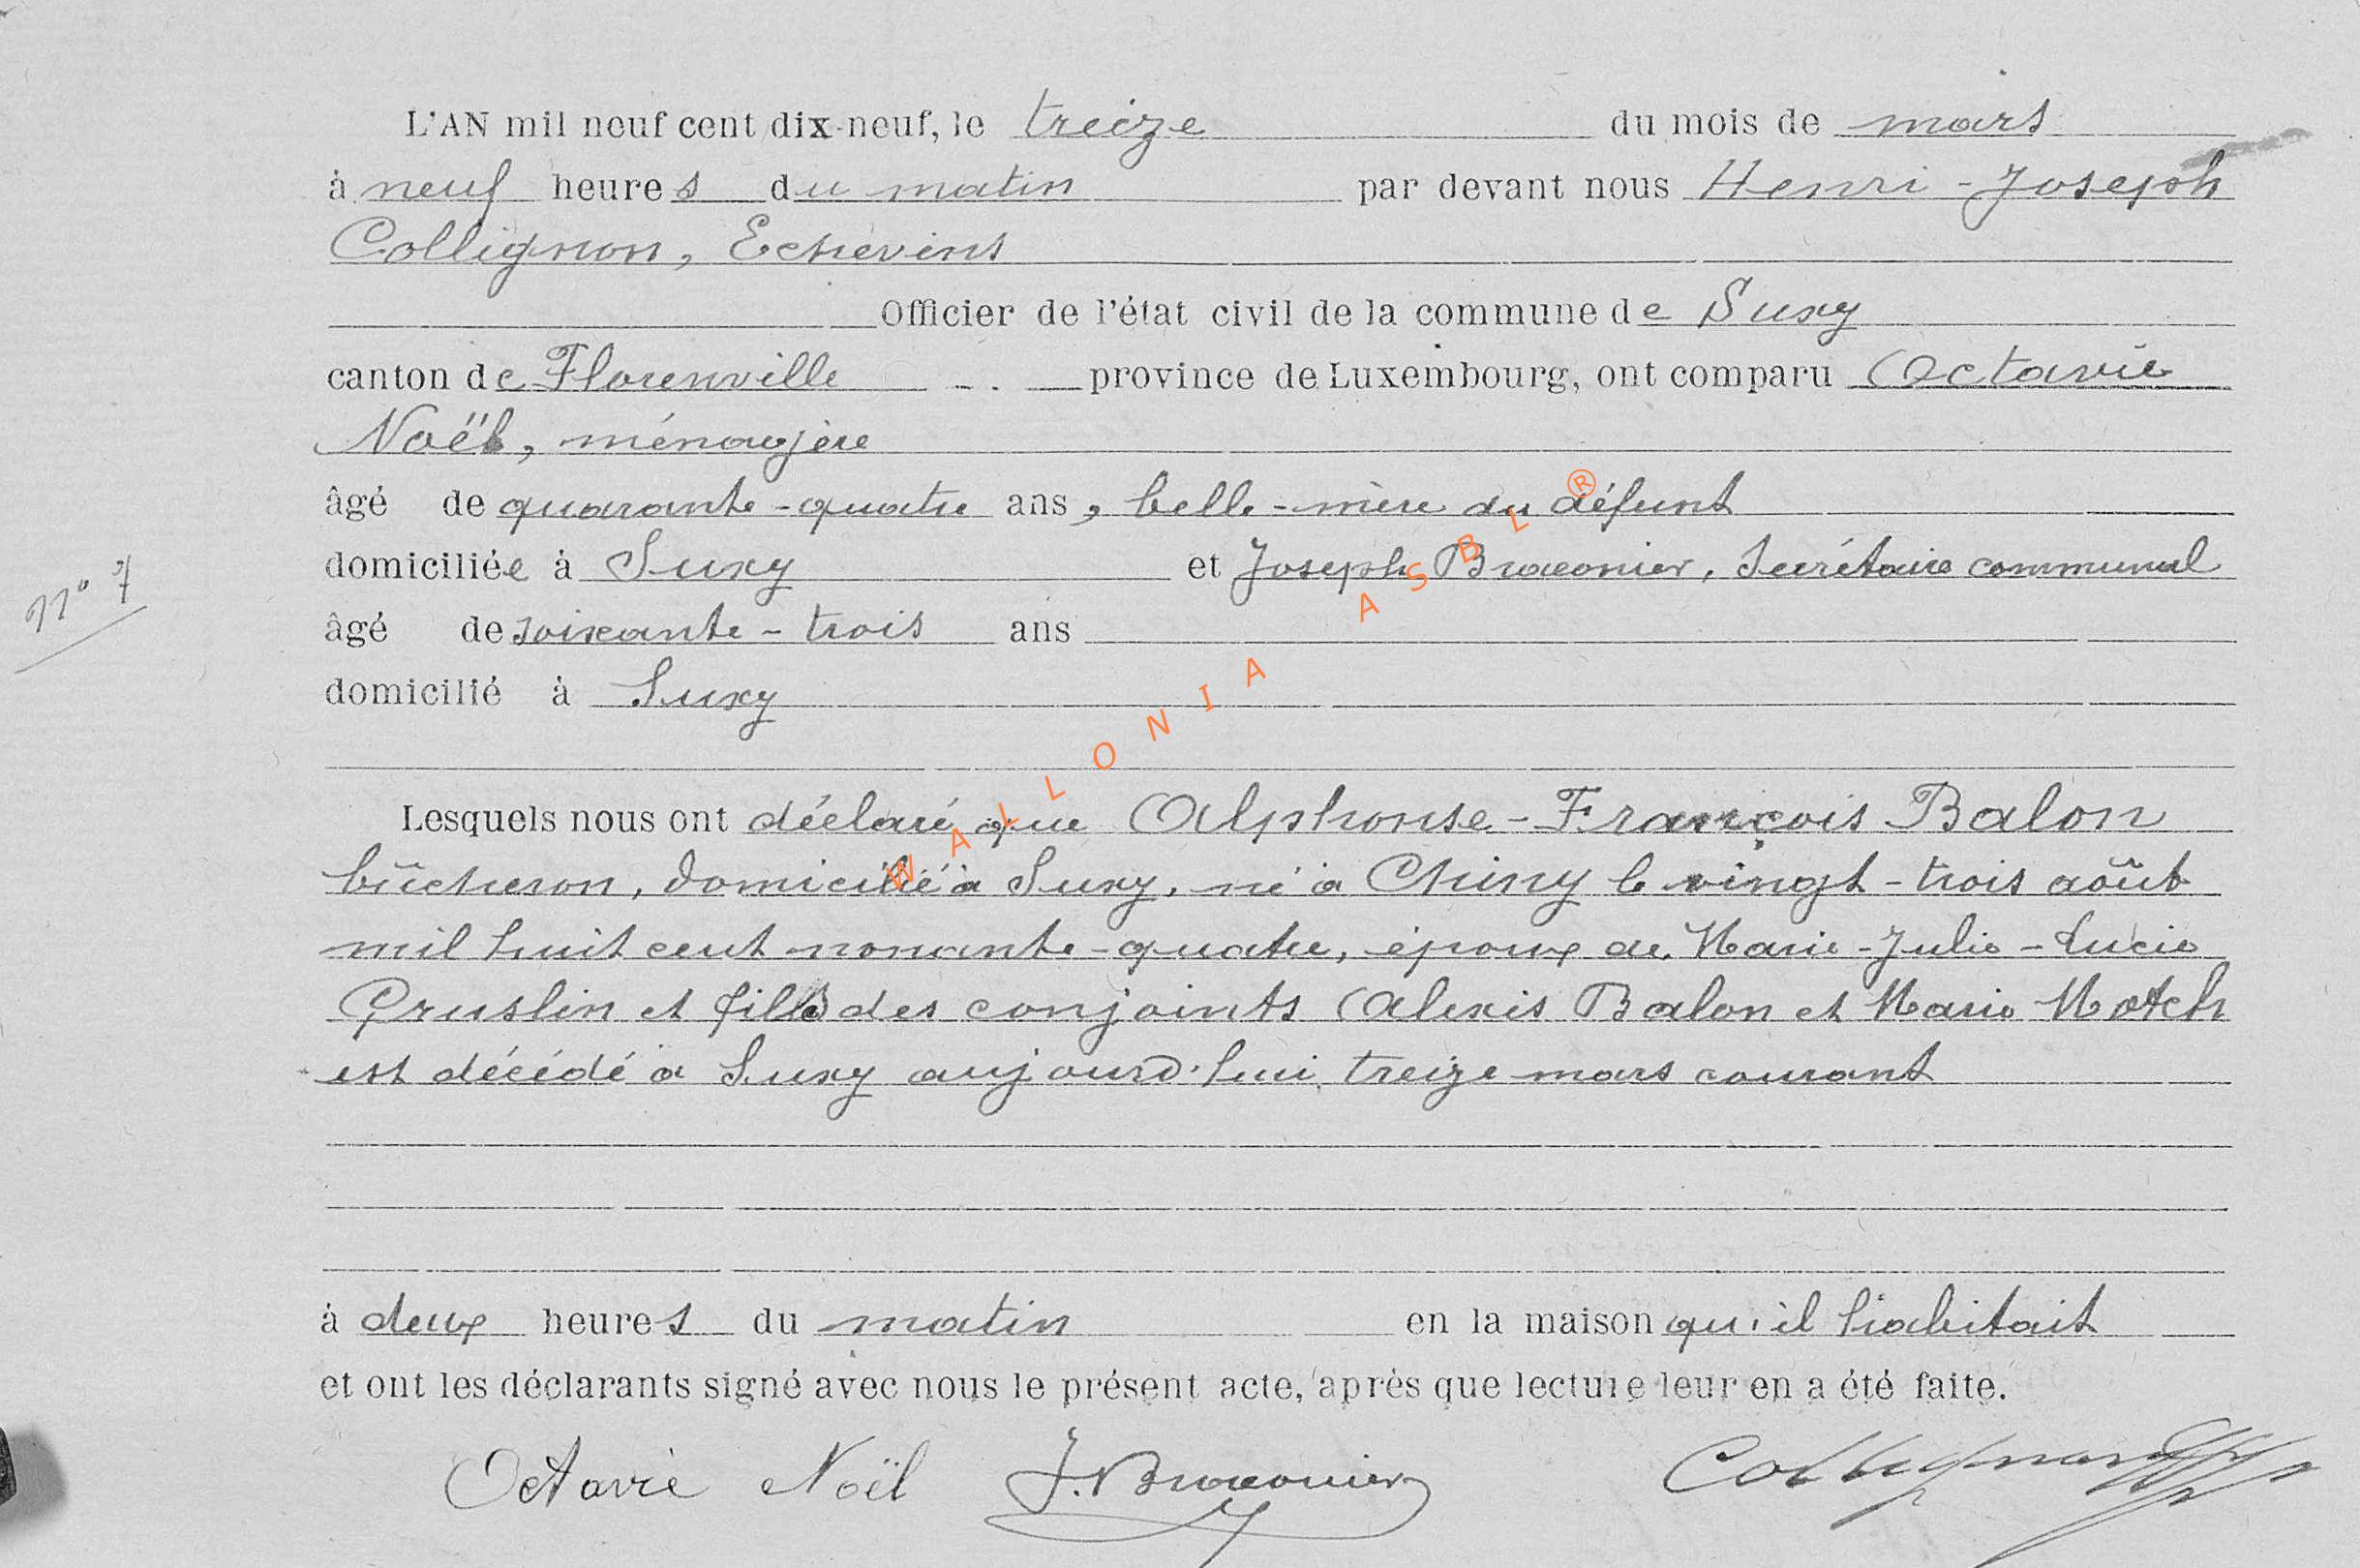 L'AN mil neuf cent dix-neuf, le treize du mois de mars
à neuf heures du matin par devant nous Henri-Joseph
Collignon, Echevins
Officier de l'état civil de la commune de Suxy
canton de Florenville province de Luxembourg, ont comparu Octavie
Noël, ménagère
âgé de quarante-quatre ans, belle-mère du défunt
domiciliée à Suxy et Joseph Braconier, Secrétaire communal
N° 7
âgé de soixante-trois ans
domicilié à Suxy
Lesquels nous ont déclaré que Alphonse-François Balon
bûcheron, domicilié à Suxy, né à Chiny le vingt-trois août
mil huit cent nonante-quatre, époux de Marie-Julie-Lucie
Gruslin et fils des conjoints Alexis Balon et Marie Motch
est décédé à Suxy aujourd'hui treize mars courant
à deux heures du matin en la maison qu'il habitait
et ont les déclarants signé avec nous le présent acte, après que lecture leur en a été faite.
Octavie Noël J. Braconier Collignon
WALLONIA ASBL ®